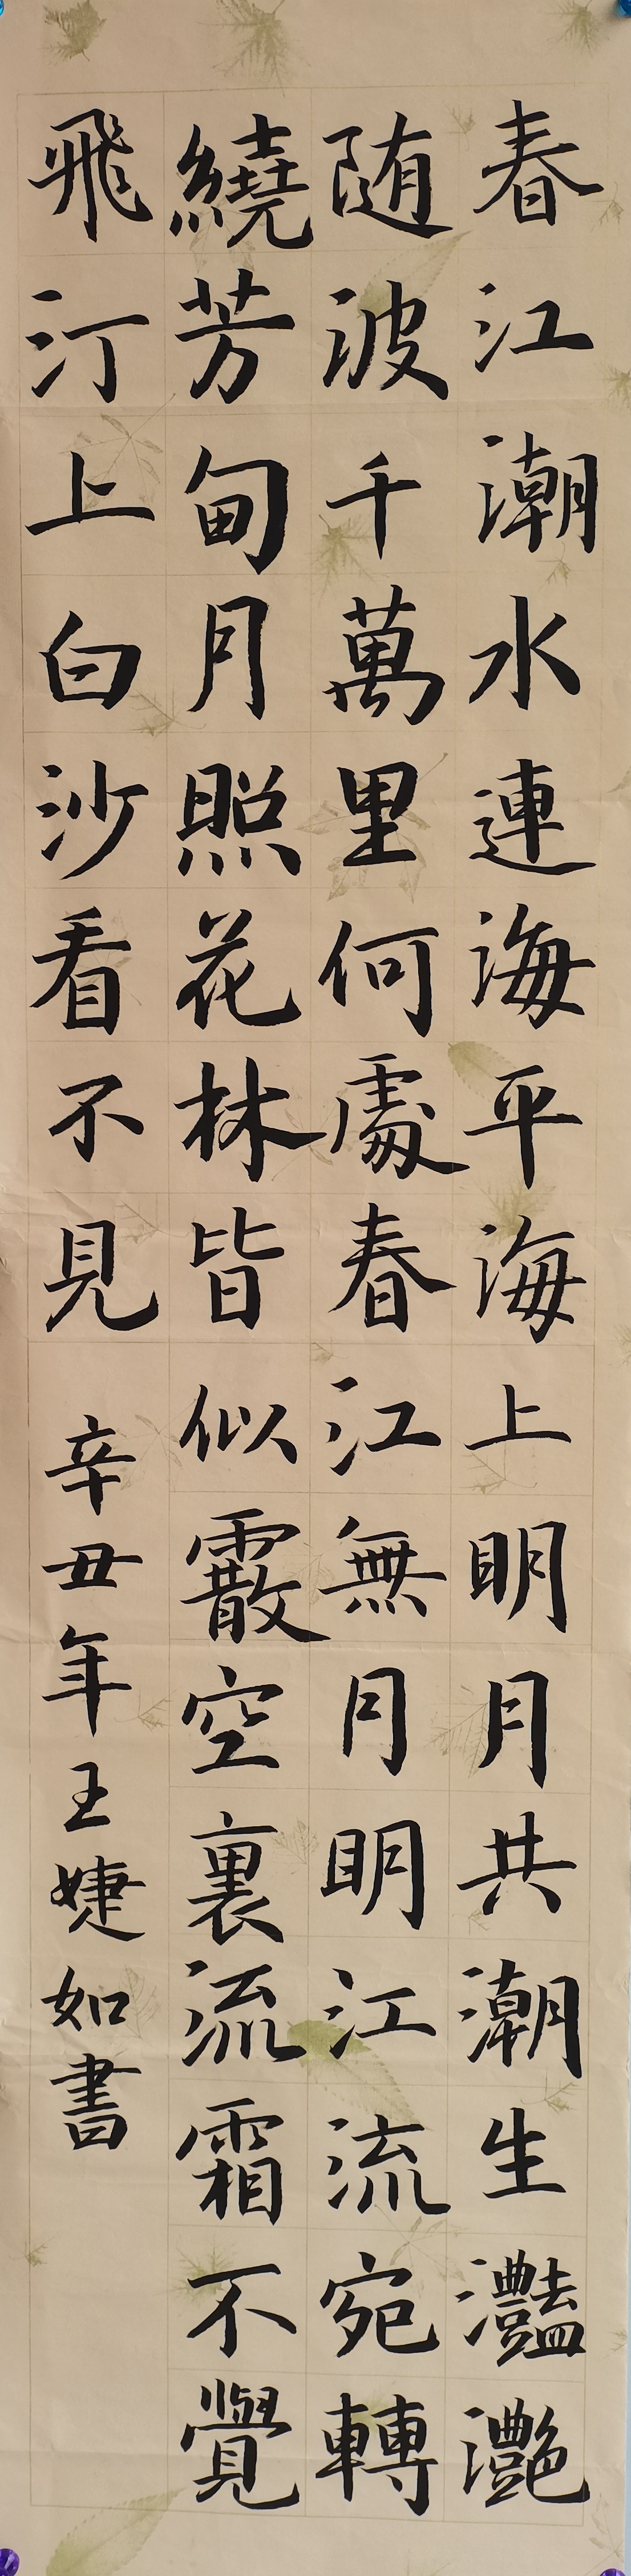 春江潮水連海平海上明月共潮生灩灧
随波千萬里何處春江無月明江流宛轉
繞芳甸月照花林皆似霰空裏流霜不覺
飛汀上白沙看不見
辛丑年王婕如書